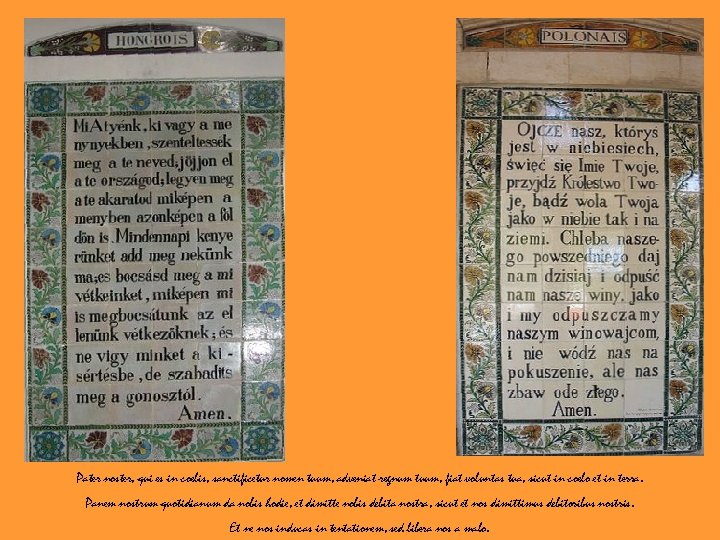 HONGROIS
Mi Atyénk, ki vagy a me
nynyekben, szenteltessék
meg a te neved, jöjjon el
a te országod, legyen meg
a te akaratod miképen a
menyben azonképen a föl
dön is. Mindennapi kenye
rünket add meg nekünk
ma, es bocsásd meg a mi
vétkeinket, miképen mi
is megbocsátunk az el
lenünk vétkezőknek; és
ne vigy minket a ki -
sértésbe, de szabadits
meg a gonosztól.
Amen.
POLONAIS
OJCZE nasz, któryś
jest w niebiesiech,
święć się Imie Twoje,
przyjdź Królestwo Two-
je, bądź wola Twoja
jako w niebie tak i na
ziemi. Chleba nasze-
go powszedniego daj
nam dzisiaj i odpuść
nam nasze winy, jako
i my odpuszczamy
naszym winowajcom,
i nie wódź nas na
pokuszenie, ale nas
zbaw ode złego.
Amen.
Pater noster, qui es in coelis, sanctificetur nomen tuum, adveniat regnum tuum, fiat voluntas tua, sicut in coelo et in terra.
Panem nostrum quotidianum da nobis hodie, et dimitte nobis debita nostra, sicut et nos dimittimus debitoribus nostris.
Et ne nos inducas in tentationem, sed libera nos a malo.